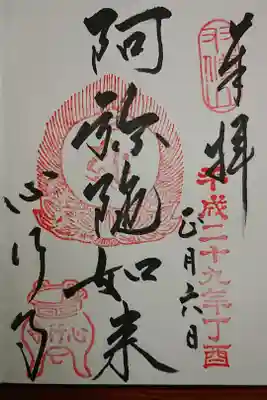 奉拝
平成二十九年丁酉
正月六日
阿弥陀如来
正行寺